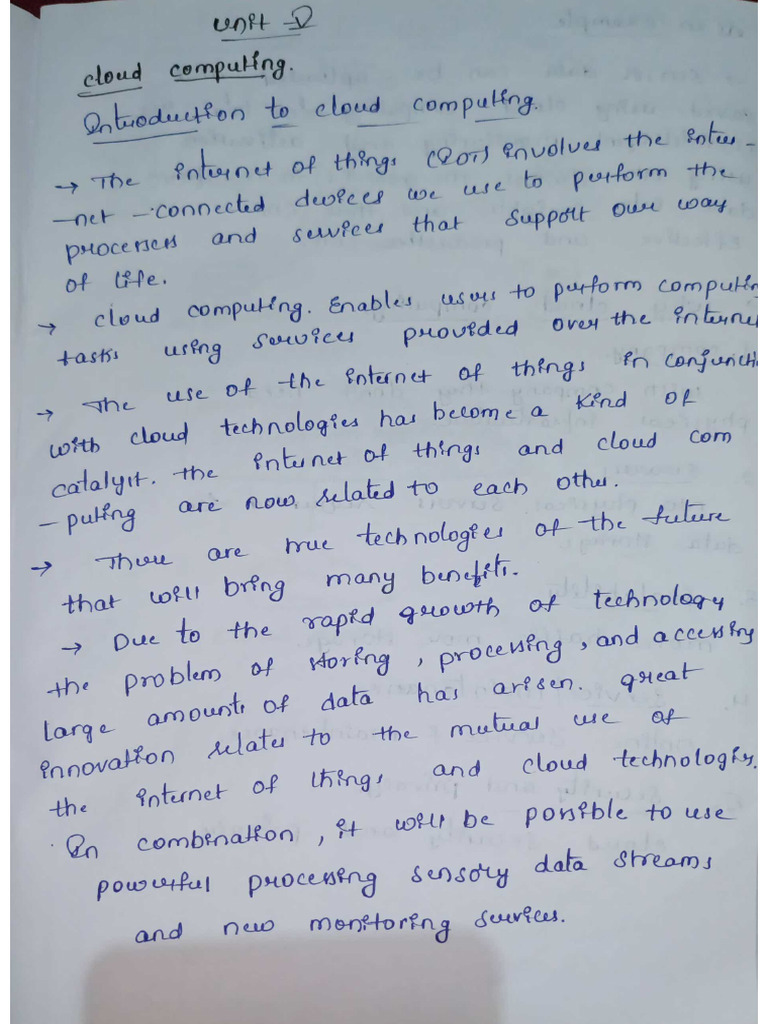 Unit - V
cloud computing.
Introduction to cloud computing.
→ The internet of things (IOT) involves the inter-
-net - connected devices we use to perform the
processes and services that support our way
of life.
→ cloud computing. Enables users to perform computin
tasks using services provided over the interne
→ The use of the internet of things in conjuncti
with cloud technologies has become a kind of
catalyst. the internet of things and cloud com
- puting are now related to each other.
→ There are true technologies of the future
that will bring many benefits.
→ Due to the rapid growth of technology
the problem of storing, processing, and accessing
large amounts of data has arisen. great
innovation relates to the mutual use of
the internet of things and cloud technologies.
In combination, it will be possible to use
powerful processing sensory data streams
and new monitoring services.